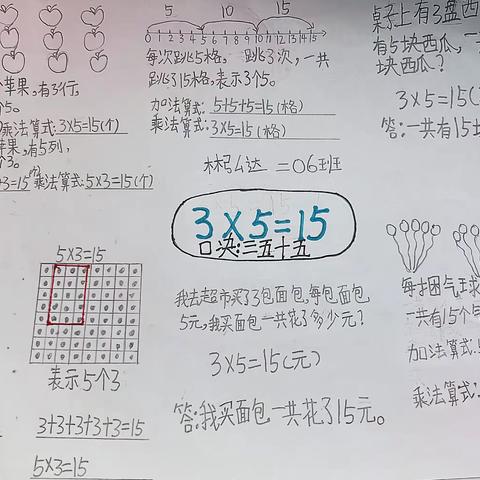 苹果,有3行,
个5。
乘法算式:3×5=15(个)
苹果,有5列,
个3。
+3=15 乘法算式:5×3=15(个)
5 10 15
0 1 2 3 4 5 6 7 8 9 10 11 12 13 14 15
每次跳5格, 跳3次,一共
跳了15格,表示3个5。
加法算式:5+5+5=15(格)
乘法算式:3×5=15(格)
桌子上有3盘西
有5块西瓜,一
块西瓜?
3×5=15(
答:一共有15块
二06班
3×5=15
口决:三五十五
5×3=15
表示5个3
3+3+3+3+3=15
5×3=15
我去超市买了3包面包,每包面包
5元,我买面包一共花了多少元?
3×5=15(元)
答:我买面包一共花了15元。
每捆气球
一共有15个
加法算式:
乘法算式: